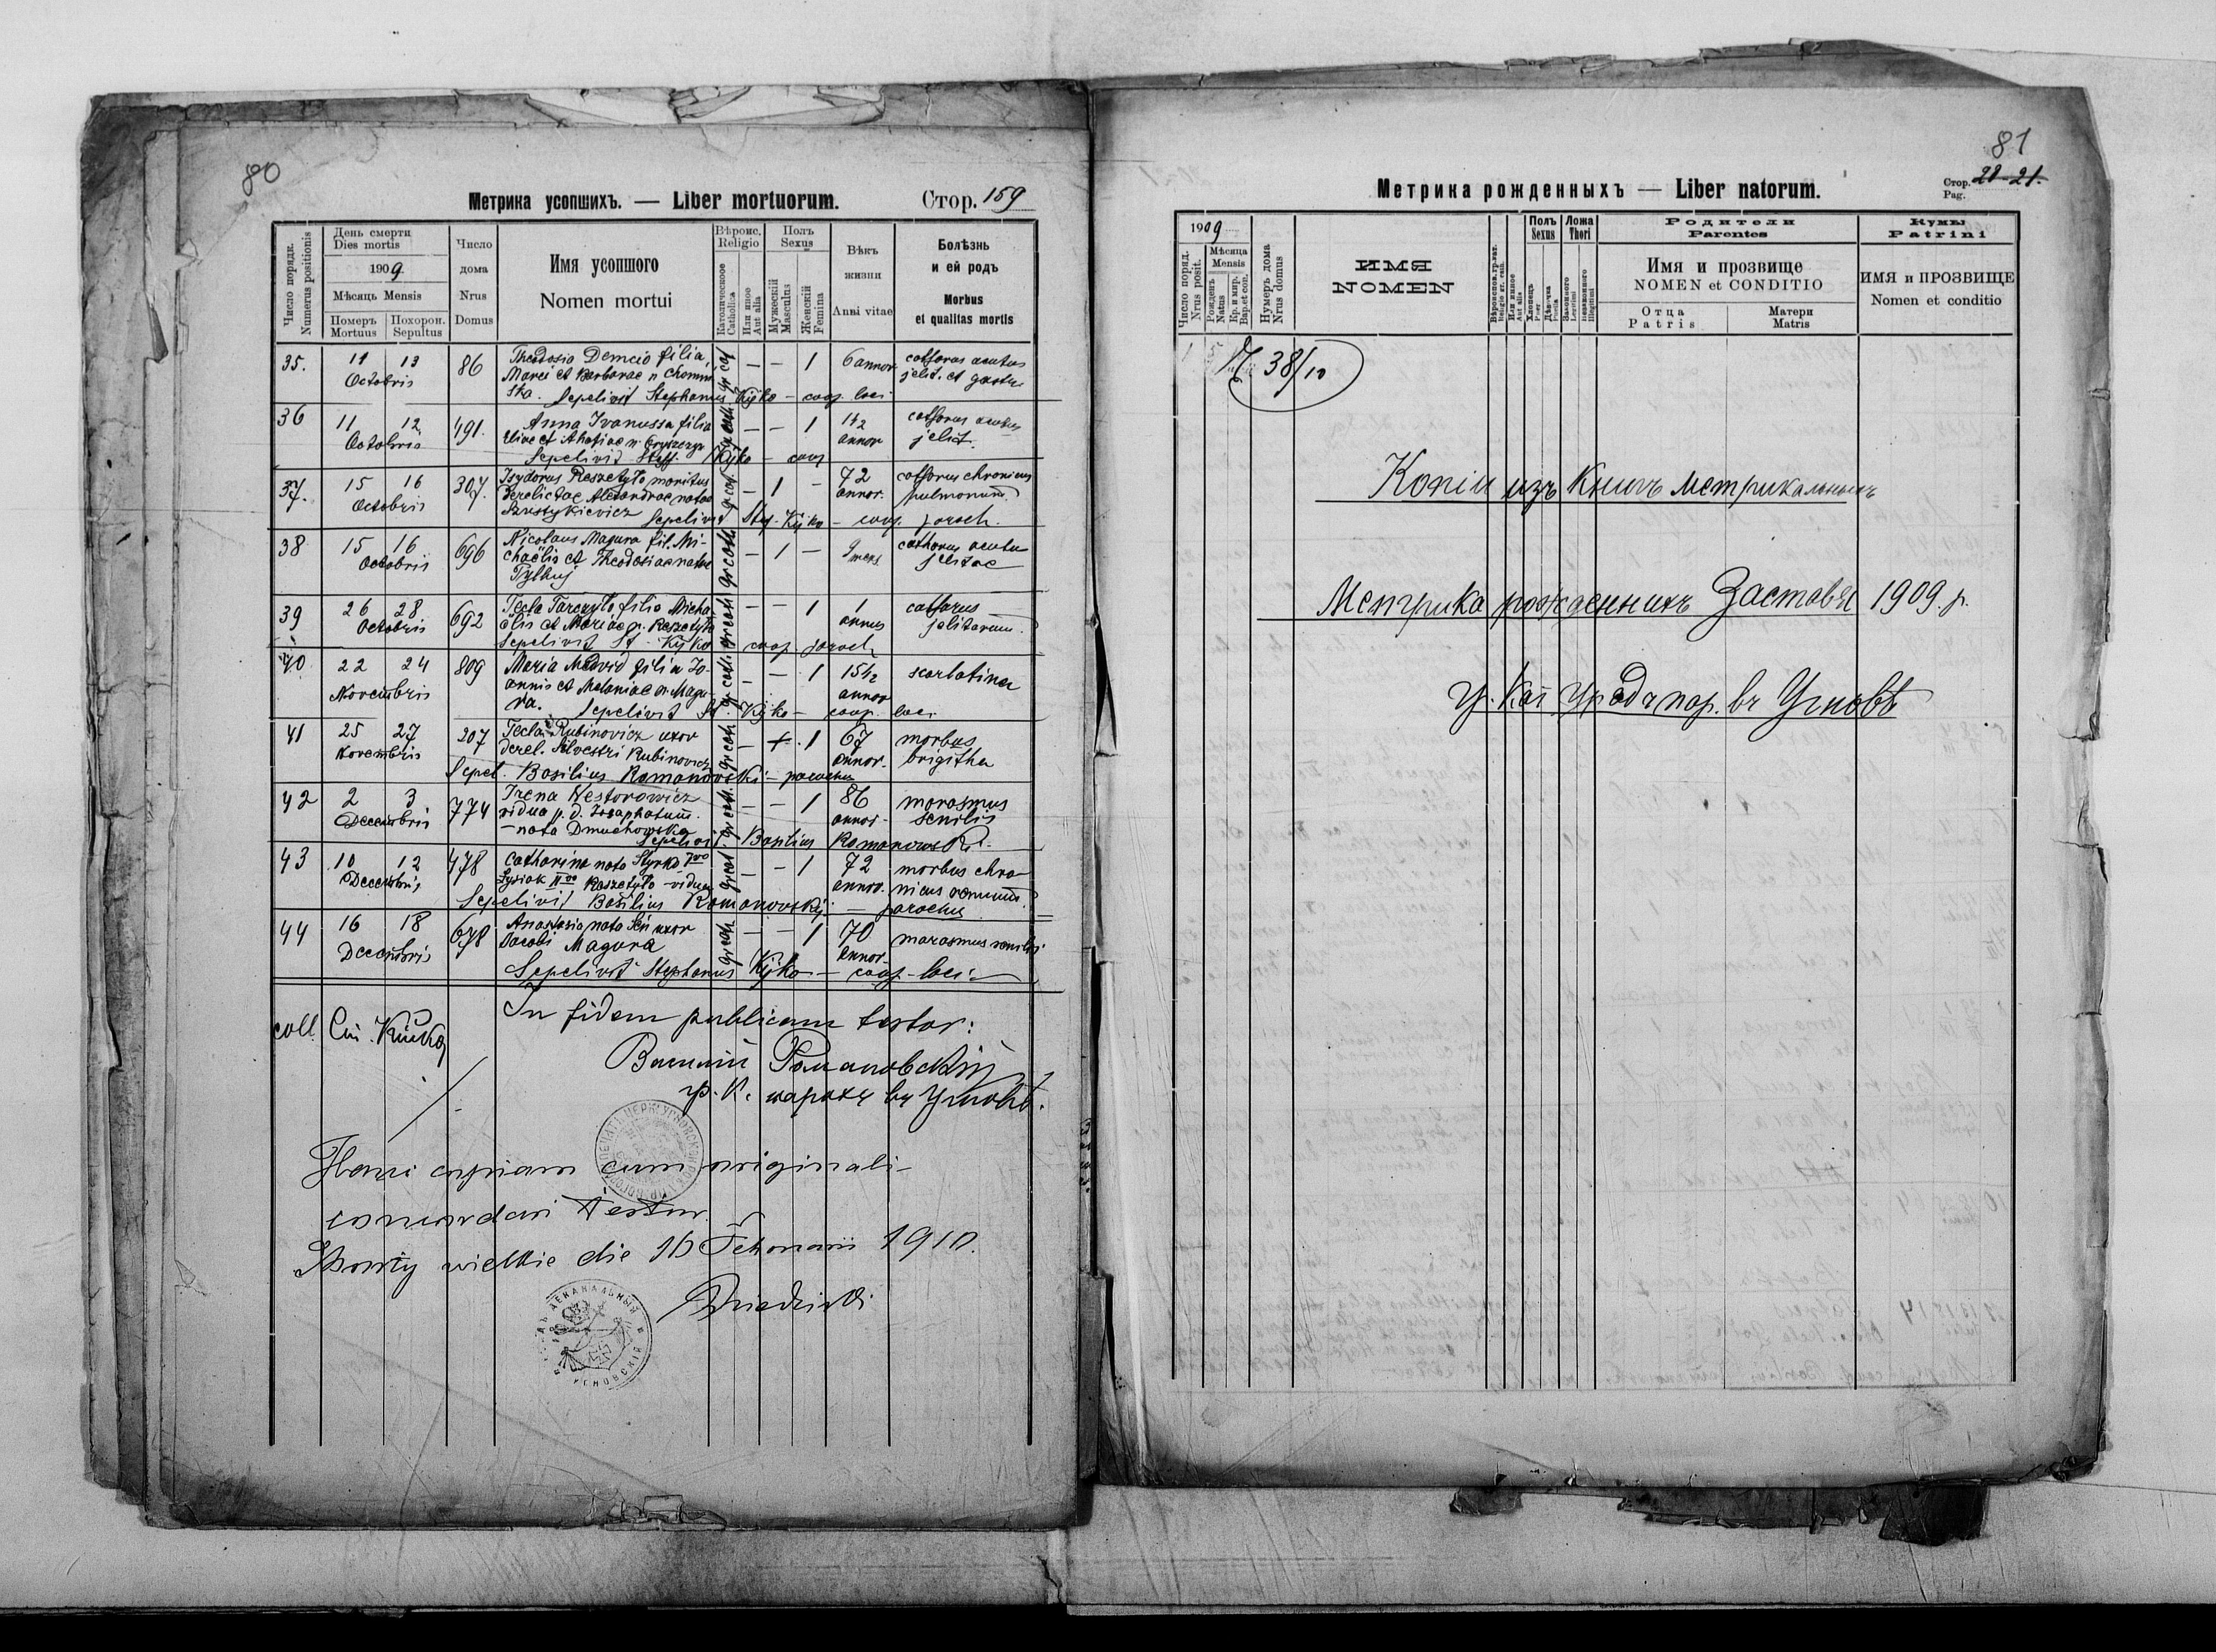 80
Метрика усопшихъ. — Liber mortuorum.
Стор. 159
Число порядк.
Numerus positionis
День смерти
Dies mortis
1909
Мѣсяць Mensis
Померъ
Mortuus
Похорон.
Sepultus
Число
дома
Nrus
Domus
Имя усопшого
Nomen mortui
Вѣроис.
Religio
Католическое
Catholica
Или иное
Aut alia
Полъ
Sexus
Мужескій
Masculus
Женскій
Femina
Вѣкъ
жизни
Anni vitae
Болѣзнь
и ей родъ
Morbus
et qualitas mortis
35. 11 13 Octobris 86 Theodosia Demcio filia gr cat — — 1 6 annor catharus acutus
Marci et Barbarae n
jelit. et
Sepelivit Stephanus Kijko — coop. loci
36 11 12 Octobris 491. Anna Iwanussa filia — — 1 annor catharus acutus
jelit.
Sepelivit Steff. Kijko — coop
37. 15 16 Octobris 307. Isydorus Reszetyło maritus gr cat — 1 — 72 annor. catharus chronicus
derelictae Alexandrae natae
pulmonum
Szustykievicz Sepelivit Stef. Kijko — coop. paroch.
38 15 16 Octobris 696 Nicolaus Magura fil. Mi- gr cath — 1 — 9 mens catharus acutus
chaëlis et Theodosiae natae
jelitae
39 26 28 Octobris 692 Tecla filia Micha- gr cath — — 1 1 annus catharus
ëlis et Mariae n. Reszetyło
jelitarum.
Sepelivit St. Kijko coop. paroch
40 22 24 Novembris 809 Maria Medvid filia Jo- gr cath — — 1 annor scarlatina
annis et Melaniae n. Magu-
ra. Sepelivit St. Kijko — coop. loci
41 25 27 Novembris 207 Tecla Rubinovicz uxor gr cath — 1 67 annor. morbus
derel. Silvestri Rubinovicz
brigitha
Sepel. Basilius Romanovski — parochus
42 2 3 Decembris 774 Irena Nestorowicz gr cath. — — 1 86 annor. morasmus
vidua p. d. Josaphatum.
senilis
— nata Dmuchowska
Sepelivit. Basilius Romanowski.
43 10 12 Decembris 478 Catharina nata Styrko gr cat — — 1 72 annor. morbus chro-
Łysiak II Reszetyło — vidua
nicus
Sepelivit Basilius Romanovskij — parochus
44 16 18 Decembris 678 Anastasia nata uxor gr cath — — 1 70 annor. marasmus senilis
Jacobi Magura
Sepelivit Stephanus Kijko — coop. loci
In fidem publicam testor:
coll. Ст. Кийко
Василий Романовскій
гр. к. парохъ въ Угновѣ.
Hanc copiam cum originali
concordari testor.
wielkie die 16 Februarii 1910.
81
Метрика рожденныхъ — Liber natorum.
Стор.
Pag.
20-21.
1909
Число поряд.
Nrus posit.
Мѣсяца
Mensis
Рожденъ
Natus
Кр. и мир.
Bap. et con.
Нумеръ дома
Nrus domus
ИМЯ
NOMEN
Вѣроиспов. гр.-кат.
Religio gr. cath.
Или иное
Aut alia
Полъ
Sexus
Хлопецъ
Puer
Дѣвочка
Puella
Ложа
Thori
Законного
Legitimi
Незаконного
Illegitimi
Родители
Parentes
Имя и прозвище
NOMEN et CONDITIO
Отца
Patris
Матери
Matris
Кумы
Patrini
ИМЯ и ПРОЗВИЩЕ
Nomen et conditio
38/10
Копіи изъ Книгъ Метрикальныхъ
Метрика рожденныхъ Заставя 1909 р.
гр. кат уряда пар. въ Угновѣ